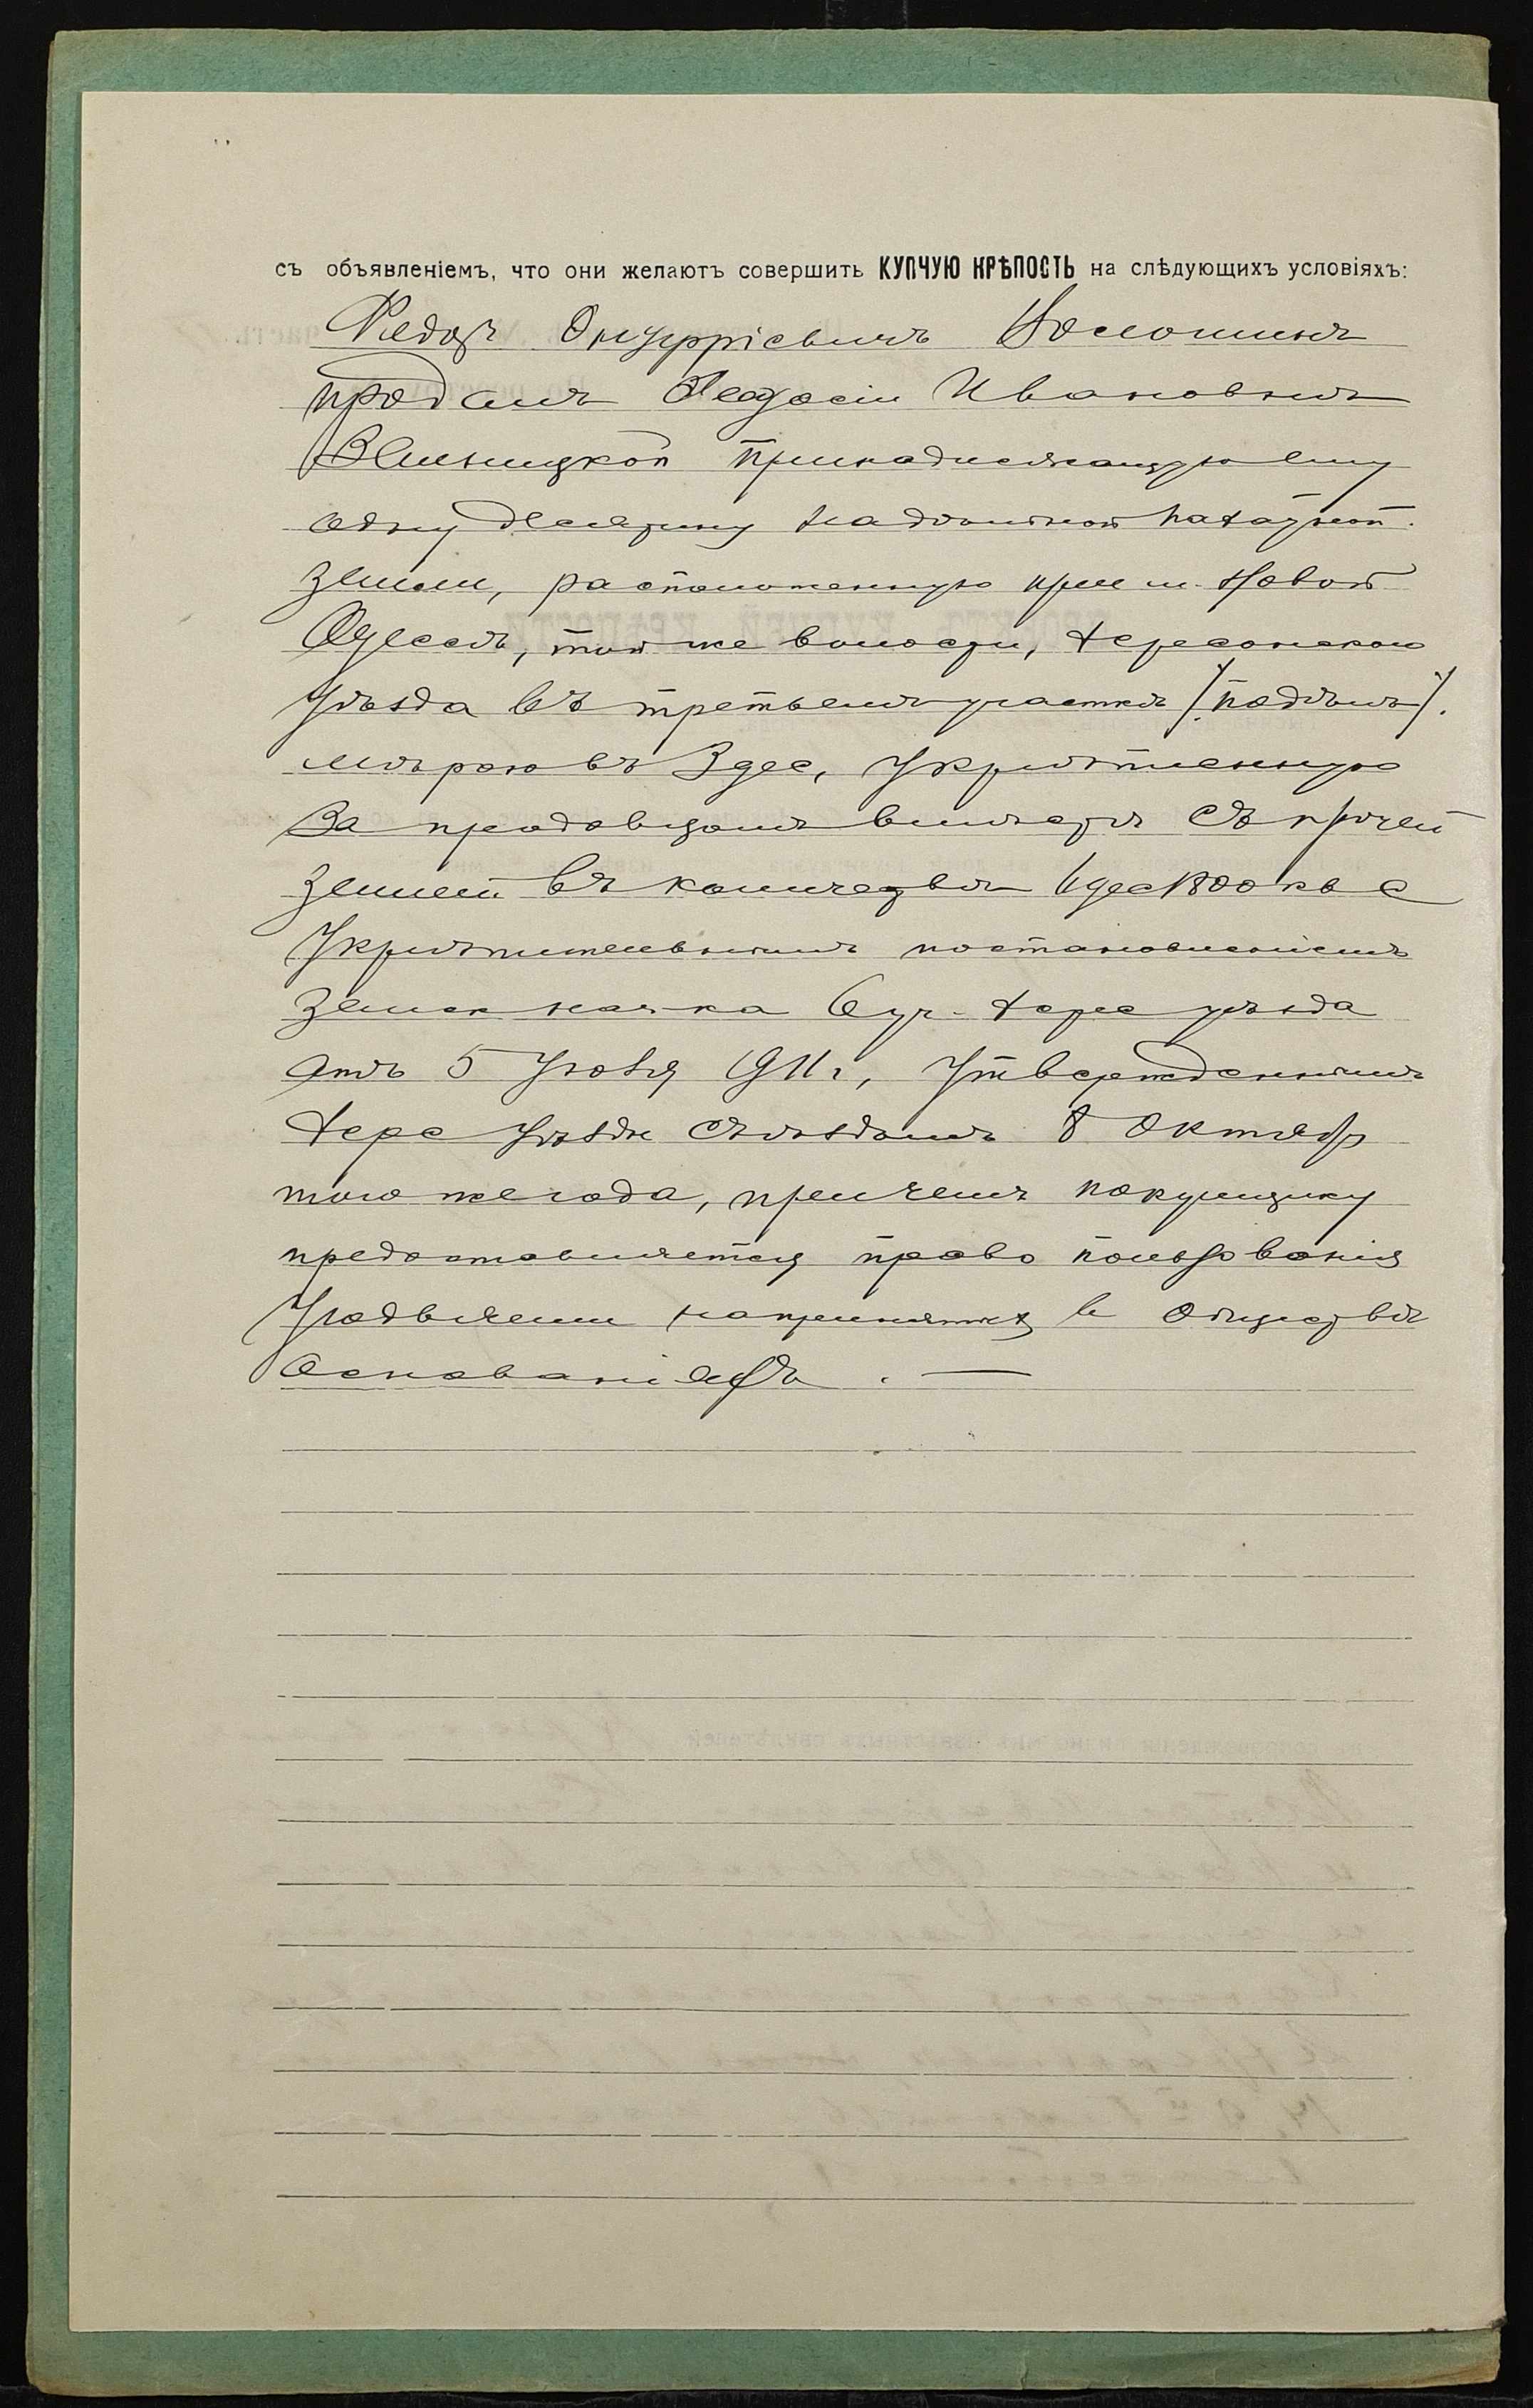 съ объявленіемъ, что они желаютъ совершить КУПЧУЮ КРѢПОСТЬ на слѣдующихъ условіяхъ:
Ѳедоръ Онуфріевичъ Волошинъ
продалъ Ѳеодосіи Ивановнѣ
принадлежащую ему
одну десятину надѣльной пахатной
земли, расположенную при м. Новой
Одессѣ, той же волости, Херсонскаго
уѣзда въ третьемъ участкѣ /подѣлъ/.
мѣрою въ 3 дес, укрѣпленную
за продавцомъ вмѣстѣ съ прочей
землей въ количествѣ 6 дес 1800 кв с
укрѣпительнымъ постановленіемъ
Земск нач-ка 6 уч. Херс уѣзда
отъ 5 1911 г, утвержденнымъ
Херс Уѣздн Съѣздомъ 8 Октябр
того же года, причемъ покупщику
предоставляется право пользованія
на принятыхъ в обществѣ
основаніяхъ. —